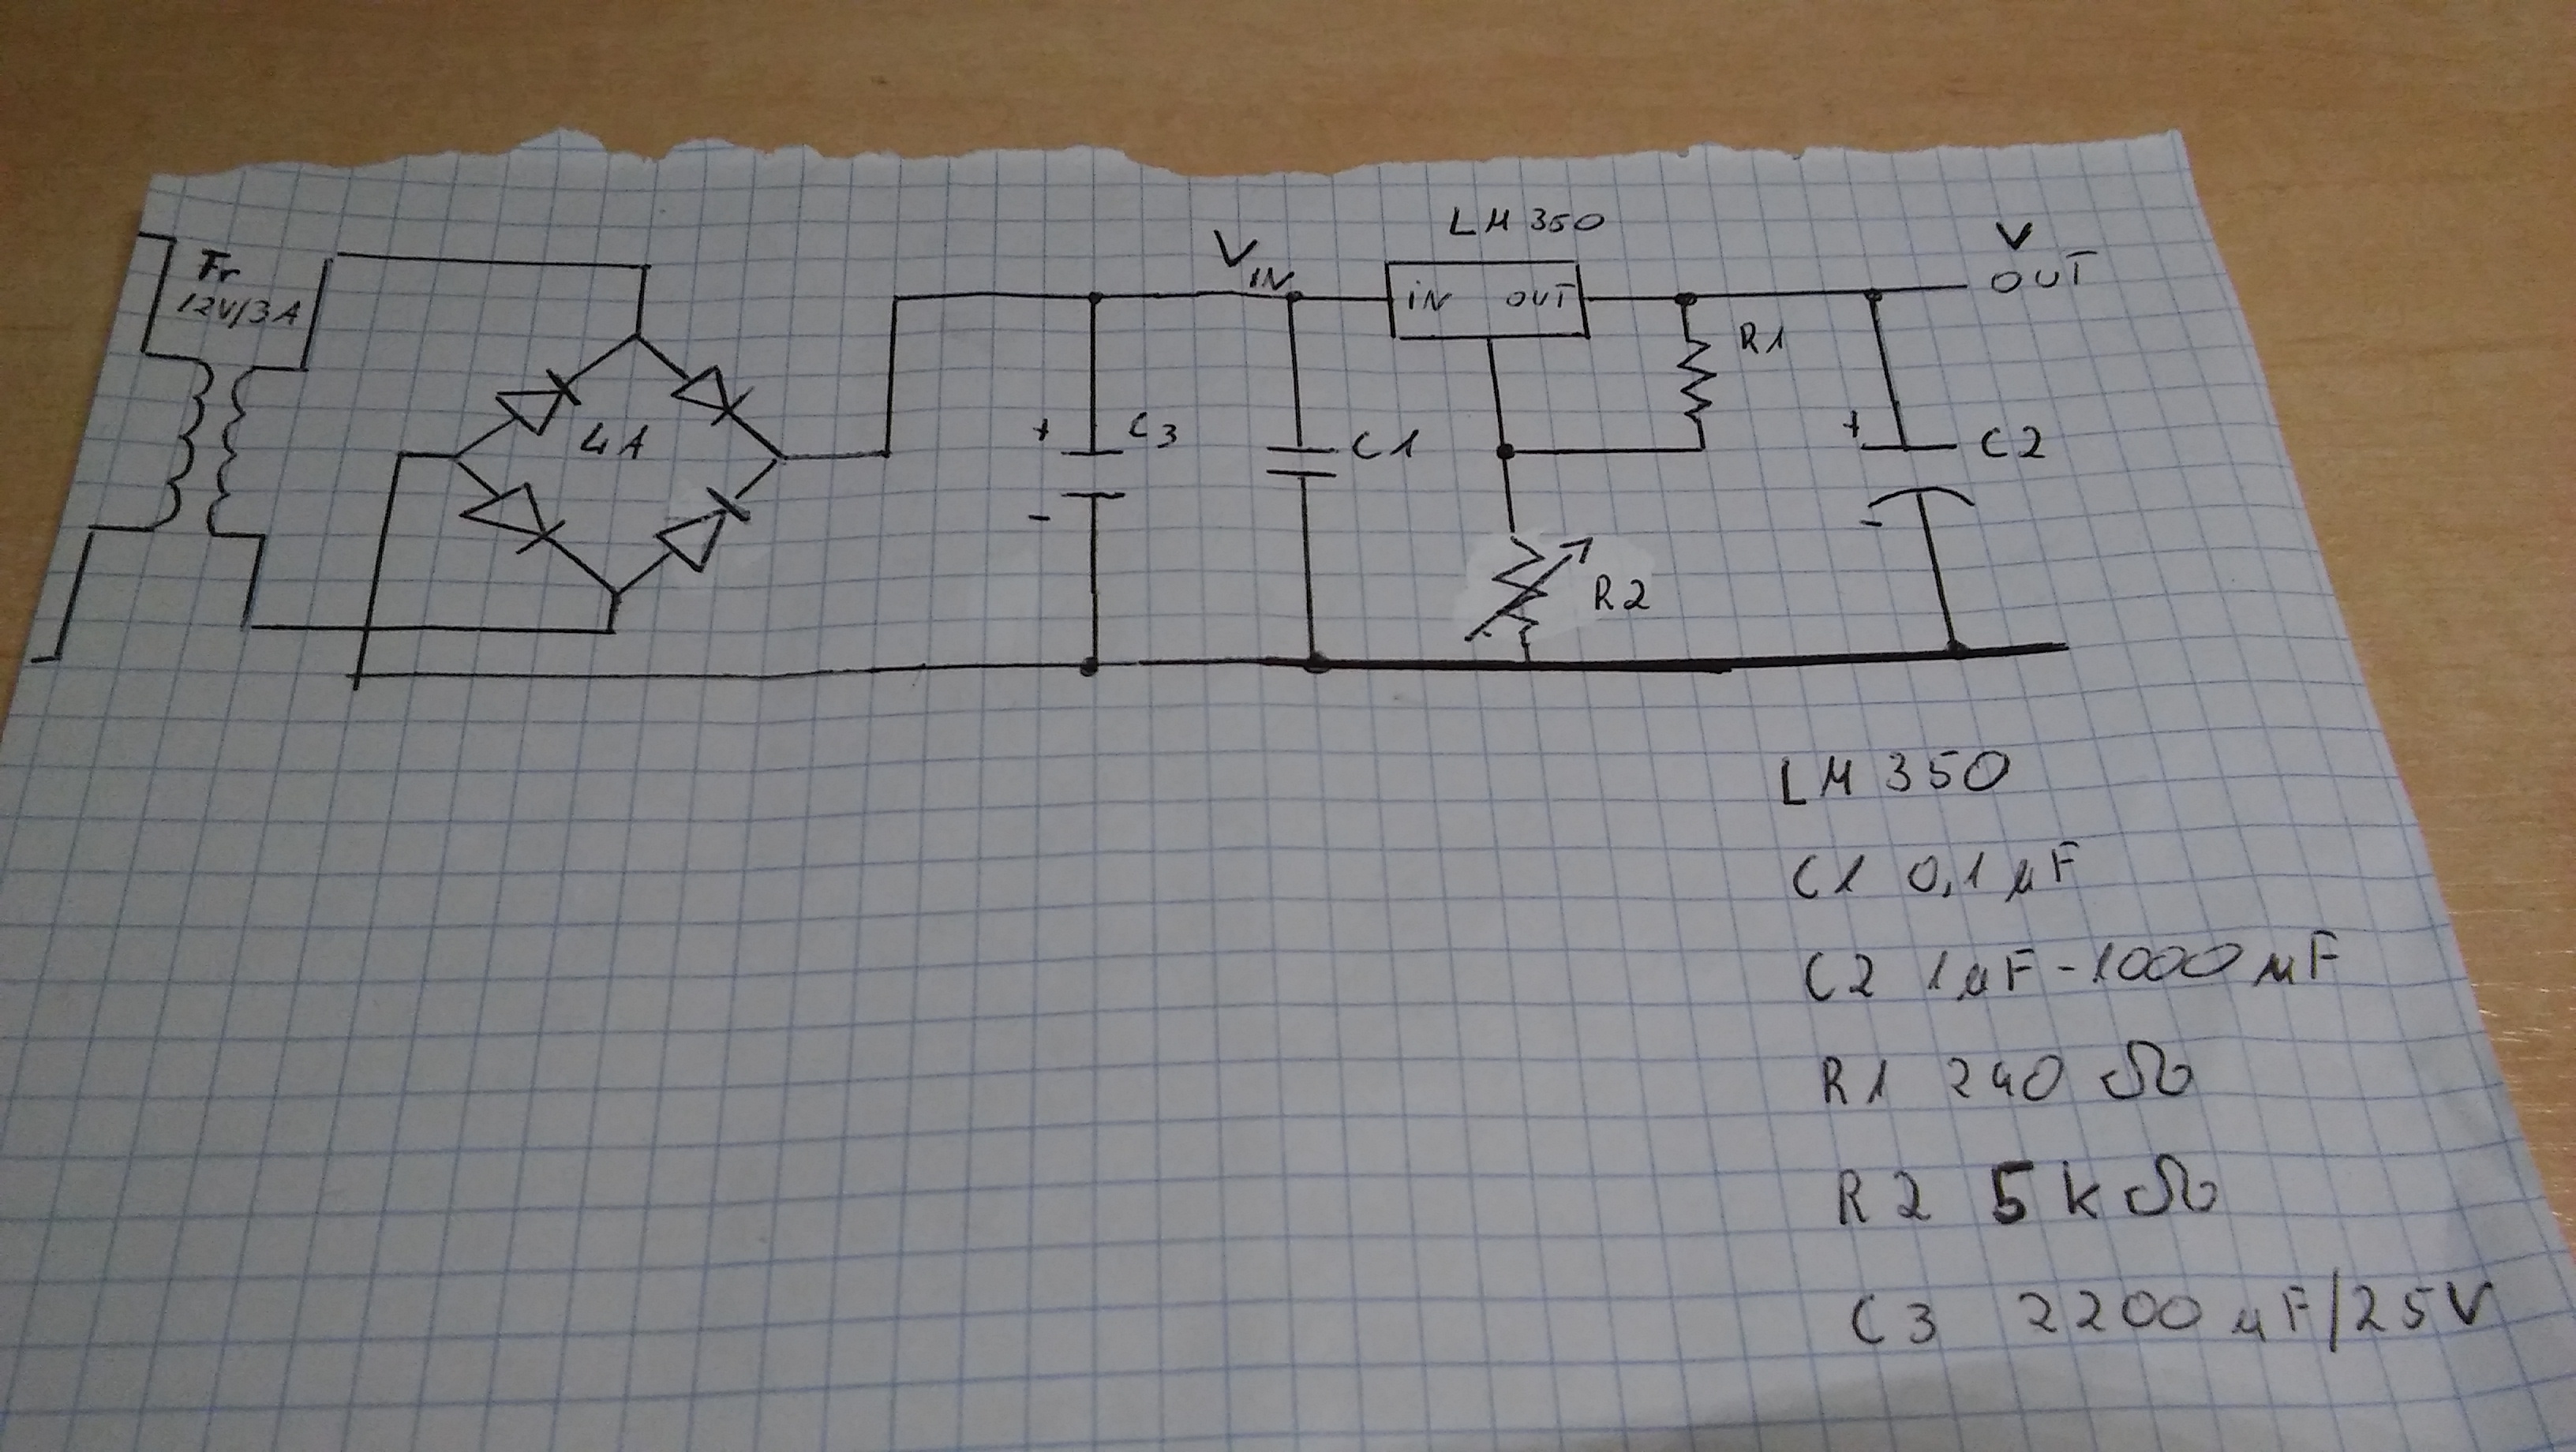 LM 350
Tr
12V/3A
VIN
IN OUT
V
OUT
R1
4A
+ C3
-
C1
+ C2
-
R2
LM 350
C1 0,1 µF
C2 1µF-1000 µF
R1 240 Ω
R2 5 k Ω
C3 2200 µF/25V